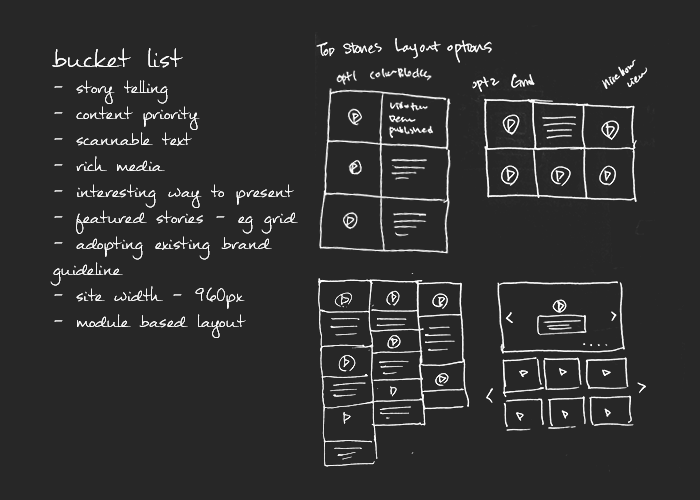 bucket list
- story telling
- content priority
- scannable text
- rich media
- interesting way to present
- featured stories - eg grid
- adopting existing brand
guideline
- site width - 960px
- module based layout
Top Stories Layout options
opt1 color Blocks
published
opt2 Grid
view